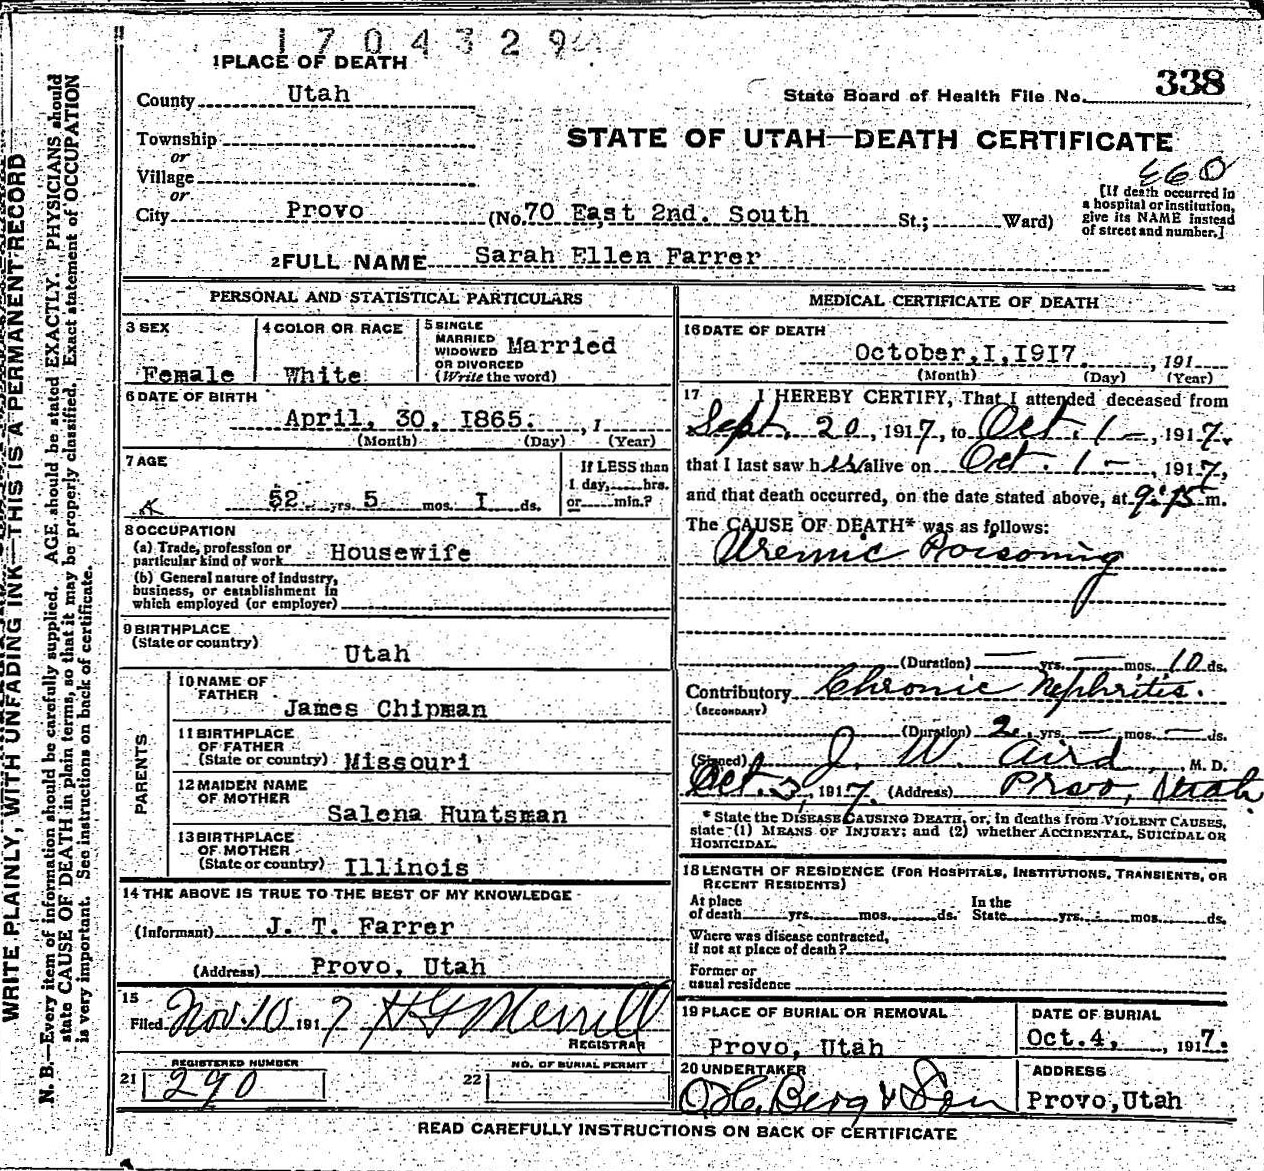 1704329
1 PLACE OF DEATH
County Utah
State Board of Health File No. 338
Township
or
STATE OF UTAH—DEATH CERTIFICATE
Village
or
City Provo (No. 70 East 2nd. South St.; Ward)
[If death occurred in
a hospital or institution,
give its NAME instead
of street and number.]
2 FULL NAME Sarah Ellen Farrer
PERSONAL AND STATISTICAL PARTICULARS
3 SEX
Female
4 COLOR OR RACE
White
5 SINGLE
MARRIED
WIDOWED
OR DIVORCED
(Write the word)
Married
6 DATE OF BIRTH
April, 30, 1865. , 1
(Month) (Day) (Year)
7 AGE
52 yrs. 5 mos. 1 ds.
If LESS than
1 day, hrs.
or min.?
8 OCCUPATION
(a) Trade, profession or
particular kind of work Housewife
(b) General nature of industry,
business, or establishment in
which employed (or employer)
9 BIRTHPLACE
(State or country)
Utah
PARENTS
10 NAME OF
FATHER
James Chipman
11 BIRTHPLACE
OF FATHER
(State or country) Missouri
12 MAIDEN NAME
OF MOTHER
Salena Huntsman
13 BIRTHPLACE
OF MOTHER
(State or country) Illinois
14 THE ABOVE IS TRUE TO THE BEST OF MY KNOWLEDGE
(Informant) J. T. Farrer
(Address) Provo, Utah
15
Filed Nov. 10 1917 H G Merrill
REGISTRAR
REGISTERED NUMBER
21 290
NO. OF BURIAL PERMIT
22
MEDICAL CERTIFICATE OF DEATH
16 DATE OF DEATH
October, 1, 1917. , 191
(Month) (Day) (Year)
17 I HEREBY CERTIFY, That I attended deceased from
Sept. 20, 1917, to Oct. 1 —, 1917.
that I last saw her alive on Oct. 1 —, 1917,
and that death occurred, on the date stated above, at 9:15 m.
The CAUSE OF DEATH* was as follows:
Uremic Poisoning
(Duration) — yrs. — mos. 10 ds.
Contributory Chronic Nephritis.
(SECONDARY)
(Duration) 2 yrs. — mos. — ds.
(Signed) J. W. Aird, M. D.
Oct. 3, 1917. (Address) Provo, Utah
* State the DISEASE CAUSING DEATH, or, in deaths from VIOLENT CAUSES,
state (1) MEANS OF INJURY; and (2) whether ACCIDENTAL, SUICIDAL OR
HOMICIDAL.
18 LENGTH OF RESIDENCE (FOR HOSPITALS, INSTITUTIONS, TRANSIENTS, OR
RECENT RESIDENTS)
At place
of death yrs. mos. ds.
In the
State yrs. mos. ds.
Where was disease contracted,
if not at place of death?
Former or
usual residence
19 PLACE OF BURIAL OR REMOVAL
Provo, Utah
DATE OF BURIAL
Oct. 4, , 1917.
20 UNDERTAKER
O. H. Berg & Son
ADDRESS
Provo, Utah
READ CAREFULLY INSTRUCTIONS ON BACK OF CERTIFICATE
WRITE PLAINLY, WITH UNFADING INK—THIS IS A PERMANENT RECORD
N. B.—Every item of information should be carefully supplied. AGE should be stated EXACTLY. PHYSICIANS should
state CAUSE OF DEATH in plain terms, so that it may be properly classified. Exact statement of OCCUPATION
is very important. See instructions on back of certificate.